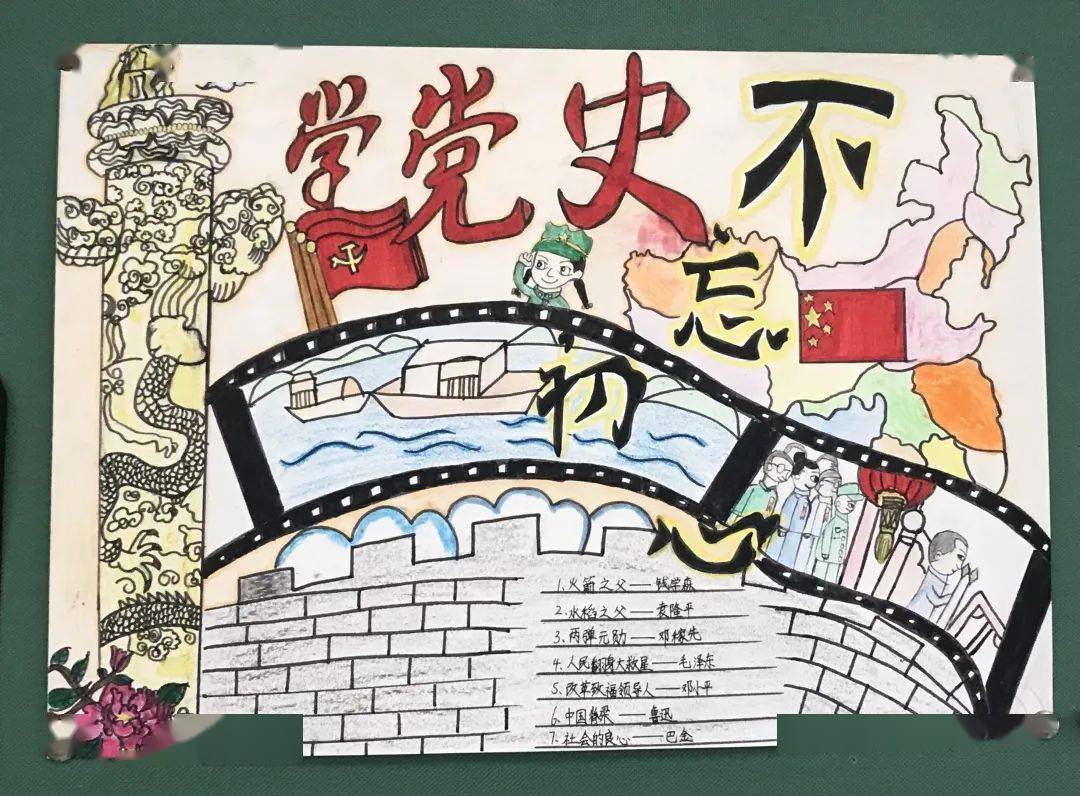 学党史不忘初心
1、火箭之父——钱学森
2、水稻之父——袁隆平
3、两弹元勋——邓稼先
4、人民翻身大救星——毛泽东
5、改革致福领导人——邓小平
6、中国脊梁——鲁迅
7、社会的良心——巴金